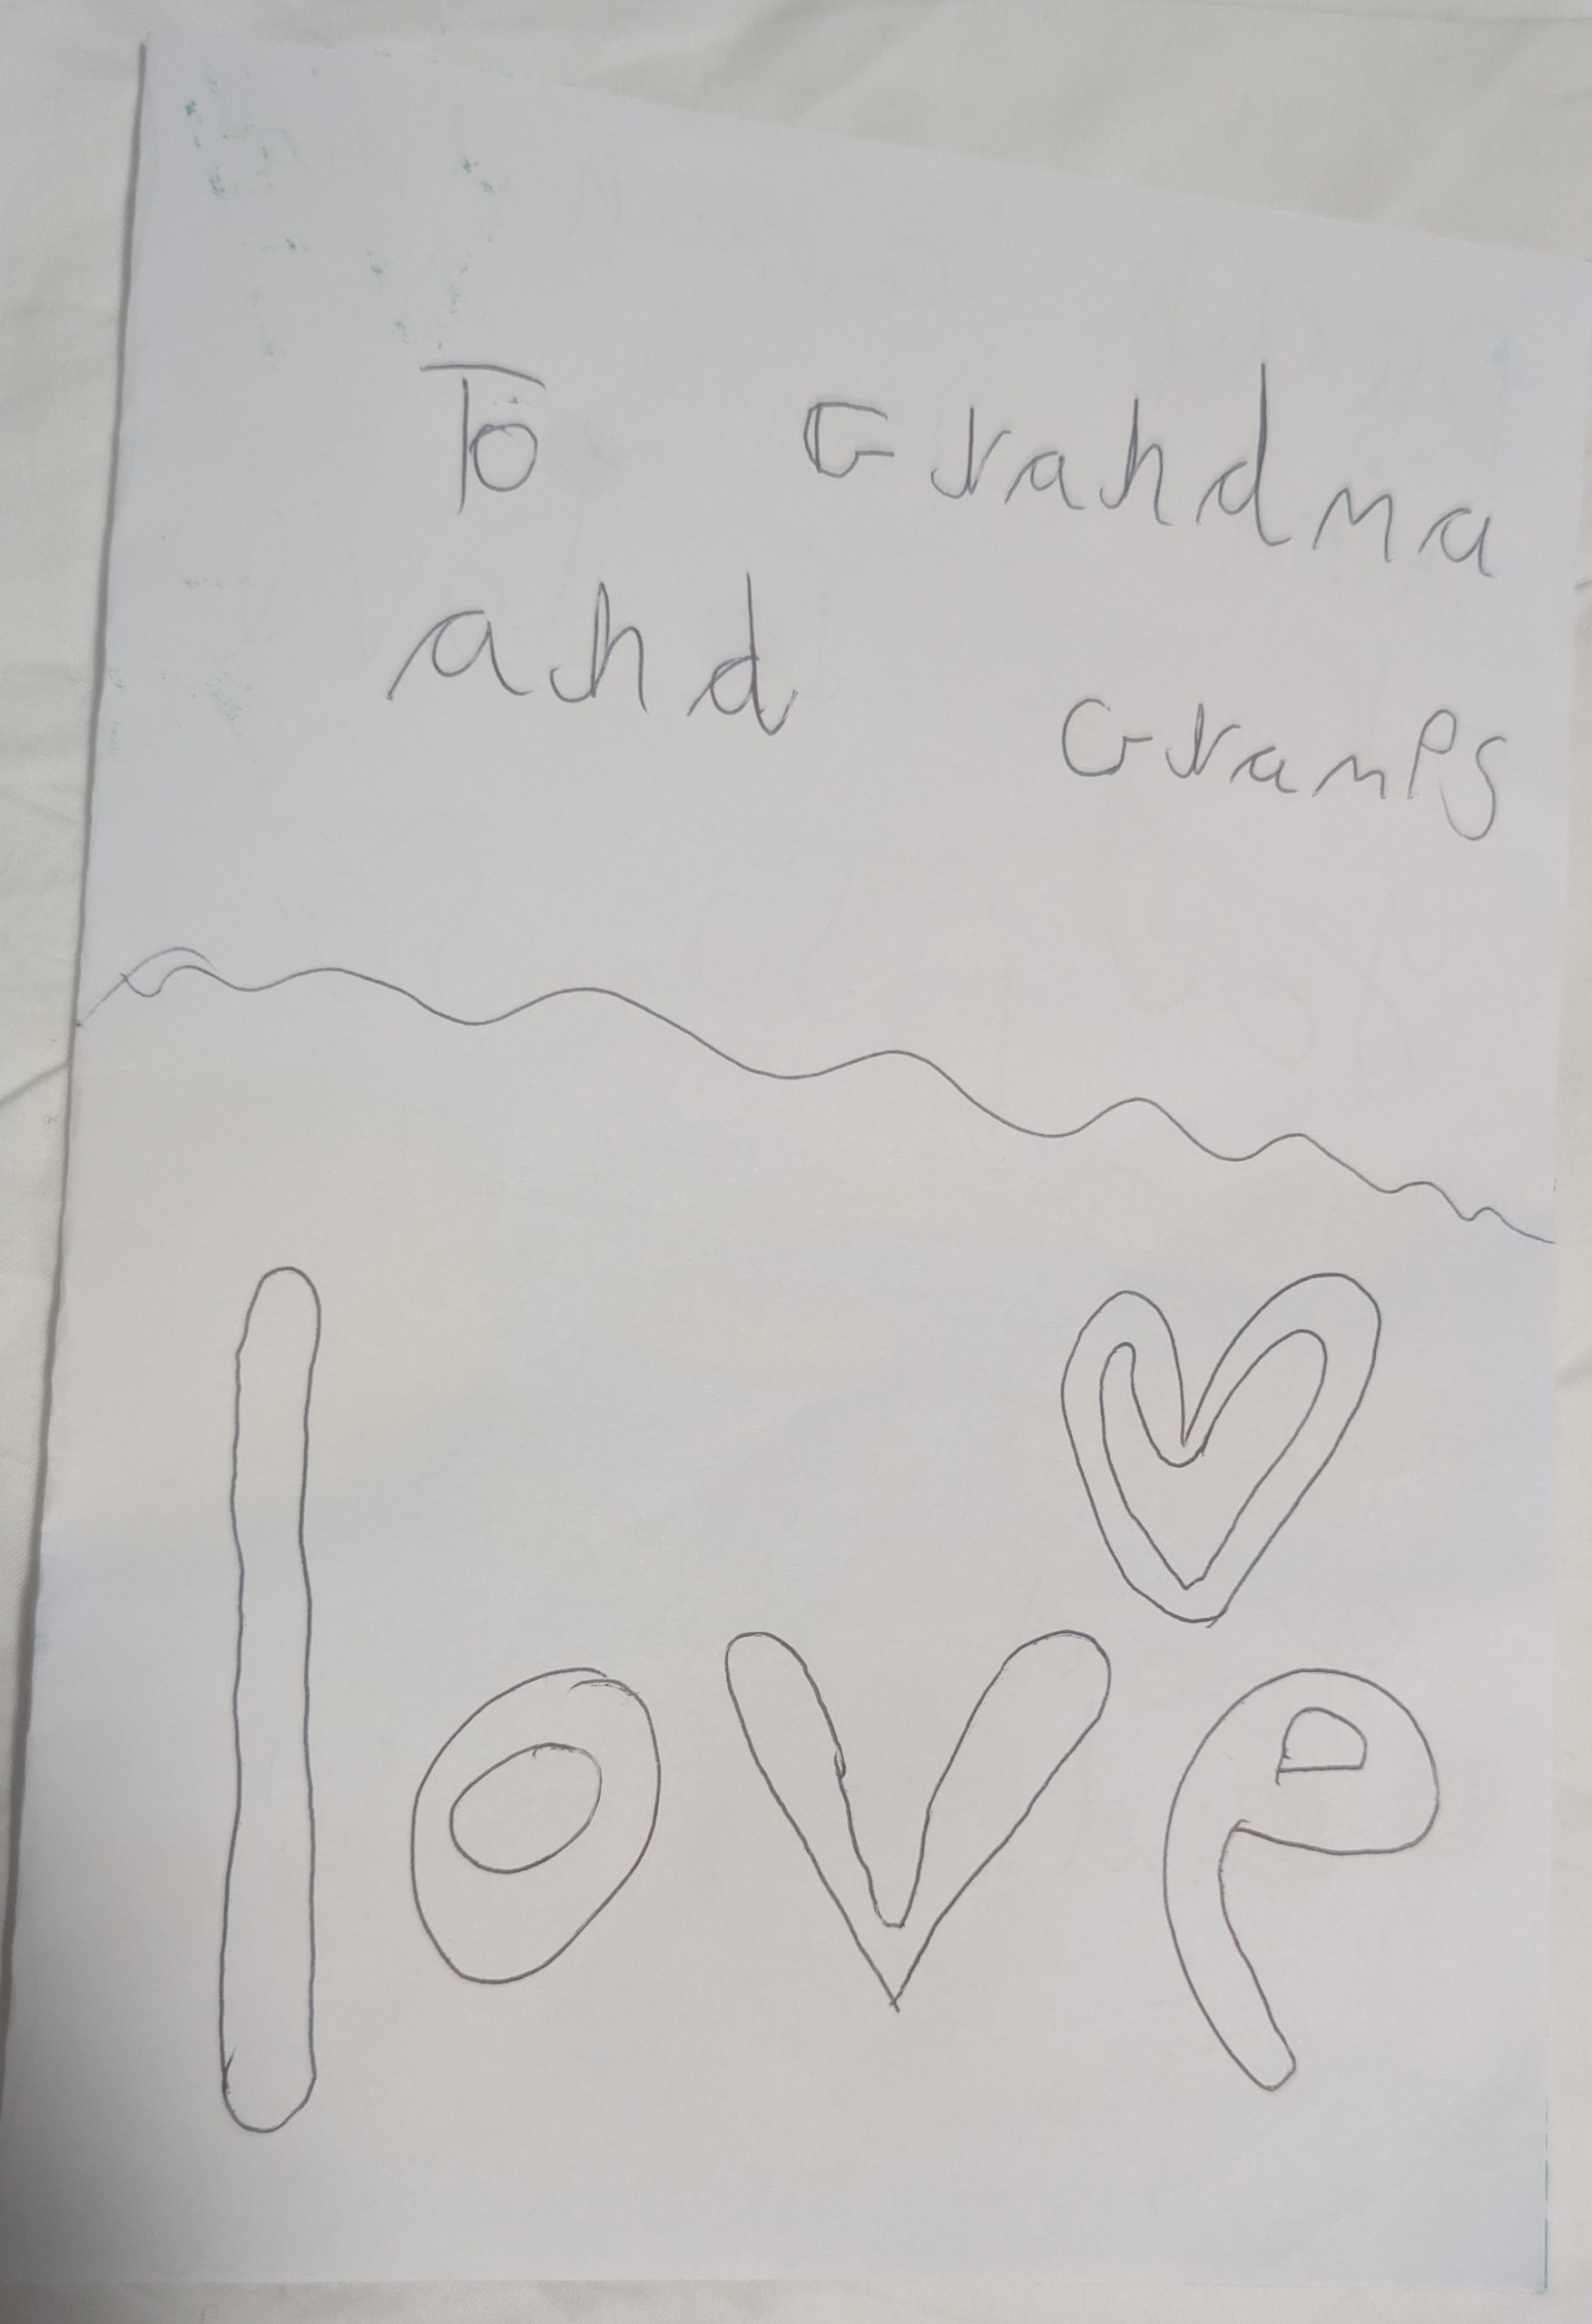 To Grandma
and Gramps
love